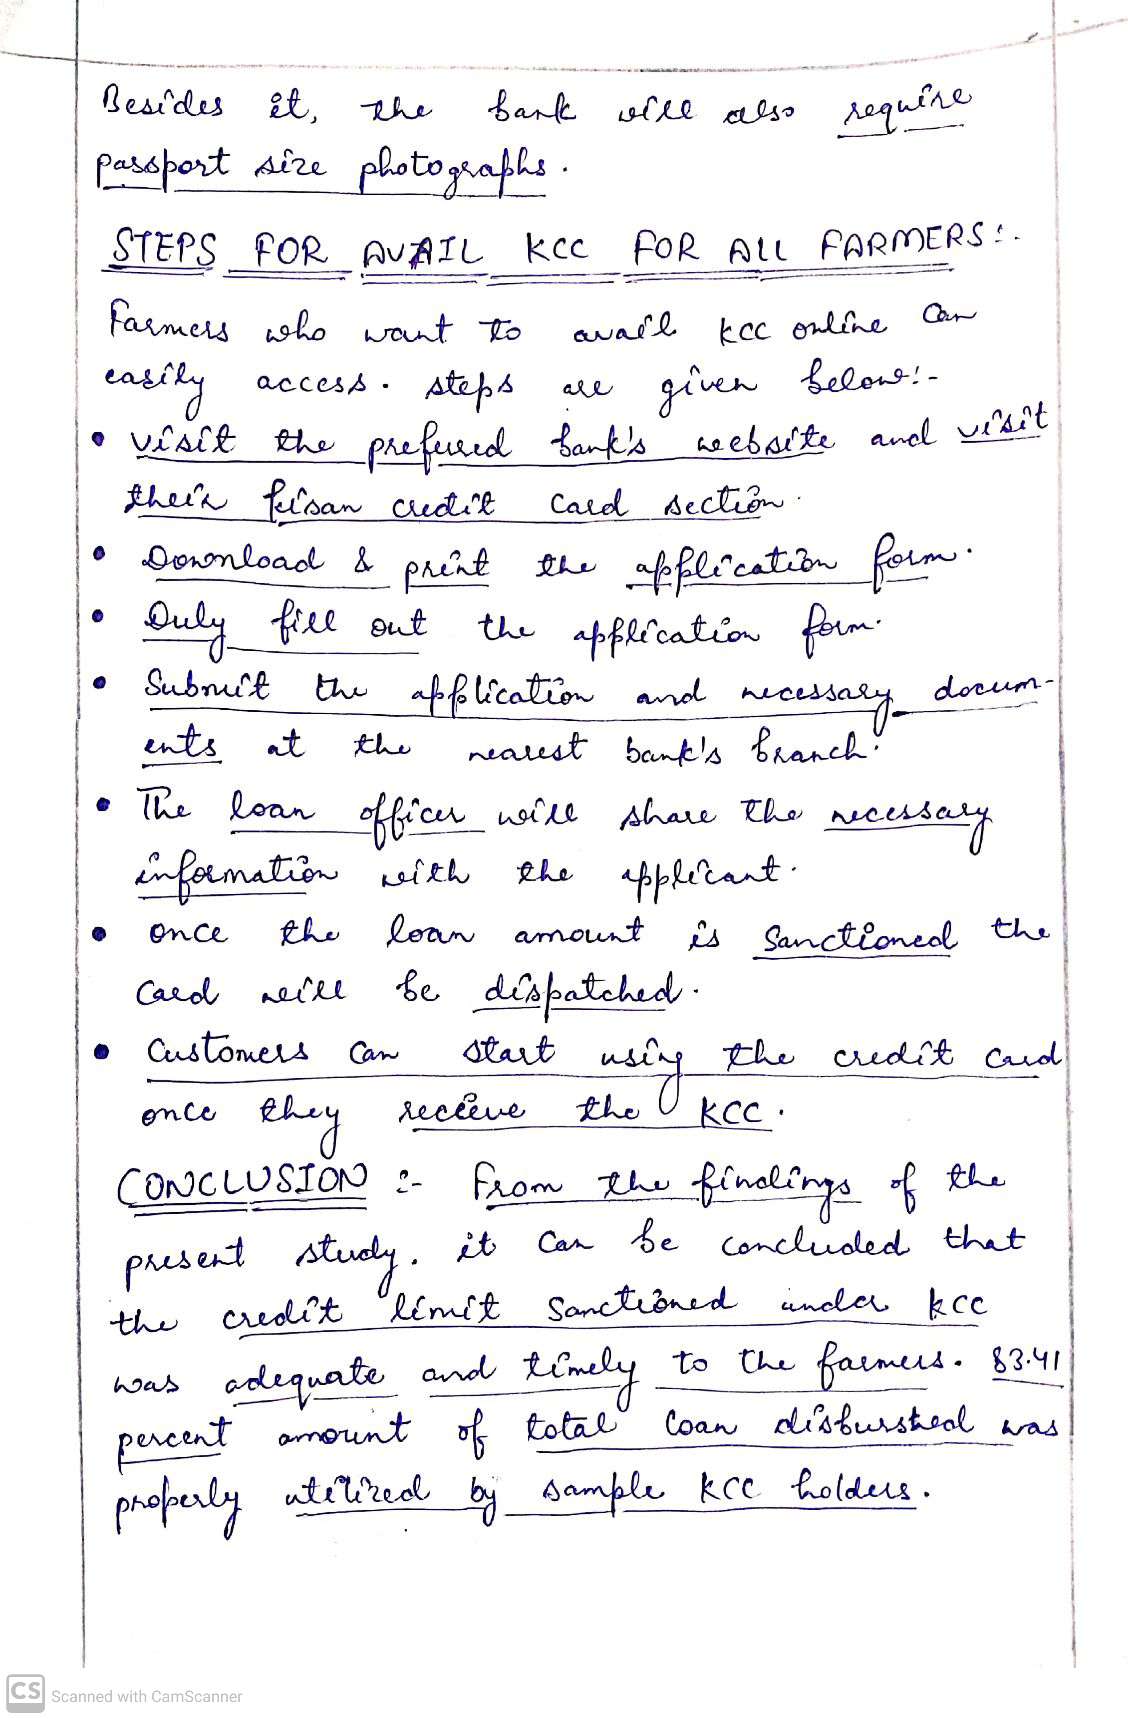 Besides it, the bank will also require
passport size photographs.
STEPS FOR AVAIL KCC FOR ALL FARMERS:-
Farmers who want to avail KCC online can
easily access. steps are given below:-
• visit the preferred bank's website and visit
their kisan credit card section.
• Download & print the application form.
• Duly fill out the application form.
• Submit the application and necessary docum-
ents at the nearest bank's branch.
• The loan officer will share the necessary
information with the applicant.
• once the loan amount is sanctioned the
Card will be dispatched.
• Customers can start using the credit card
once they receive the KCC.
CONCLUSION :- From the findings of the
present study, it can be concluded that
the credit limit sanctioned under kcc
was adequate and timely to the farmers. 83.41
percent amount of total loan disburshed was
properly utilized by sample KCC holders.
CS Scanned with CamScanner